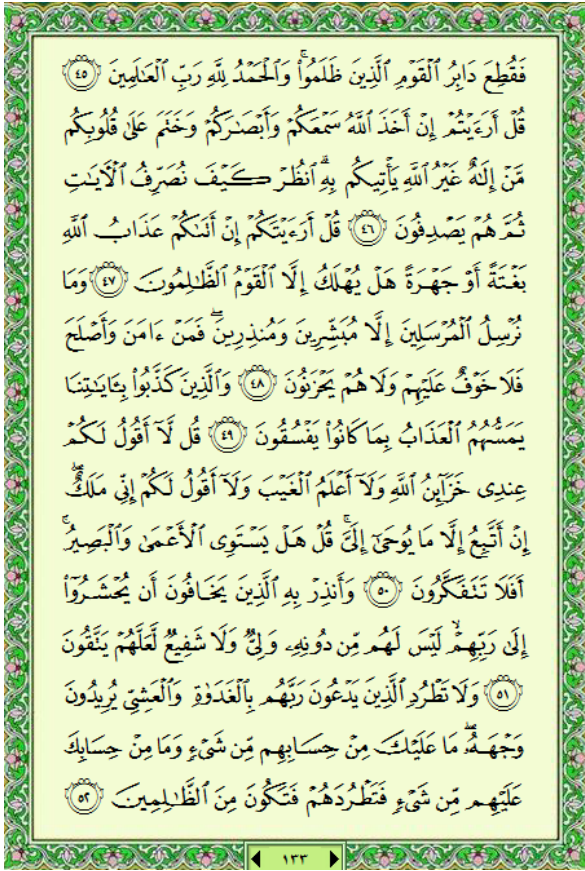 فَقُطِعَ دَابِرُ ٱلْقَوْمِ ٱلَّذِينَ ظَلَمُوا۟ ۚ وَٱلْحَمْدُ لِلَّهِ رَبِّ ٱلْعَـٰلَمِينَ ﴿٤٥﴾
قُلْ أَرَءَيْتُمْ إِنْ أَخَذَ ٱللَّهُ سَمْعَكُمْ وَأَبْصَـٰرَكُمْ وَخَتَمَ عَلَىٰ قُلُوبِكُم
مَّنْ إِلَـٰهٌ غَيْرُ ٱللَّهِ يَأْتِيكُم بِهِ ۗ ٱنظُرْ كَيْفَ نُصَرِّفُ ٱلْـَٔايَـٰتِ
ثُمَّ هُمْ يَصْدِفُونَ ﴿٤٦﴾ قُلْ أَرَءَيْتَكُمْ إِنْ أَتَىٰكُمْ عَذَابُ ٱللَّهِ
بَغْتَةً أَوْ جَهْرَةً هَلْ يُهْلَكُ إِلَّا ٱلْقَوْمُ ٱلظَّـٰلِمُونَ ﴿٤٧﴾ وَمَا
نُرْسِلُ ٱلْمُرْسَلِينَ إِلَّا مُبَشِّرِينَ وَمُنذِرِينَ ۖ فَمَنْ ءَامَنَ وَأَصْلَحَ
فَلَا خَوْفٌ عَلَيْهِمْ وَلَا هُمْ يَحْزَنُونَ ﴿٤٨﴾ وَٱلَّذِينَ كَذَّبُوا۟ بِـَٔايَـٰتِنَا
يَمَسُّهُمُ ٱلْعَذَابُ بِمَا كَانُوا۟ يَفْسُقُونَ ﴿٤٩﴾ قُل لَّآ أَقُولُ لَكُمْ
عِندِى خَزَآئِنُ ٱللَّهِ وَلَآ أَعْلَمُ ٱلْغَيْبَ وَلَآ أَقُولُ لَكُمْ إِنِّى مَلَكٌ ۖ
إِنْ أَتَّبِعُ إِلَّا مَا يُوحَىٰٓ إِلَىَّ ۚ قُلْ هَلْ يَسْتَوِى ٱلْأَعْمَىٰ وَٱلْبَصِيرُ ۚ
أَفَلَا تَتَفَكَّرُونَ ﴿٥٠﴾ وَأَنذِرْ بِهِ ٱلَّذِينَ يَخَافُونَ أَن يُحْشَرُوٓا۟
إِلَىٰ رَبِّهِمْ ۙ لَيْسَ لَهُم مِّن دُونِهِۦ وَلِىٌّ وَلَا شَفِيعٌ لَّعَلَّهُمْ يَتَّقُونَ
﴿٥١﴾ وَلَا تَطْرُدِ ٱلَّذِينَ يَدْعُونَ رَبَّهُم بِٱلْغَدَوٰةِ وَٱلْعَشِىِّ يُرِيدُونَ
وَجْهَهُۥ ۖ مَا عَلَيْكَ مِنْ حِسَابِهِم مِّن شَىْءٍ وَمَا مِنْ حِسَابِكَ
عَلَيْهِم مِّن شَىْءٍ فَتَطْرُدَهُمْ فَتَكُونَ مِنَ ٱلظَّـٰلِمِينَ ﴿٥٢﴾
١٣٣